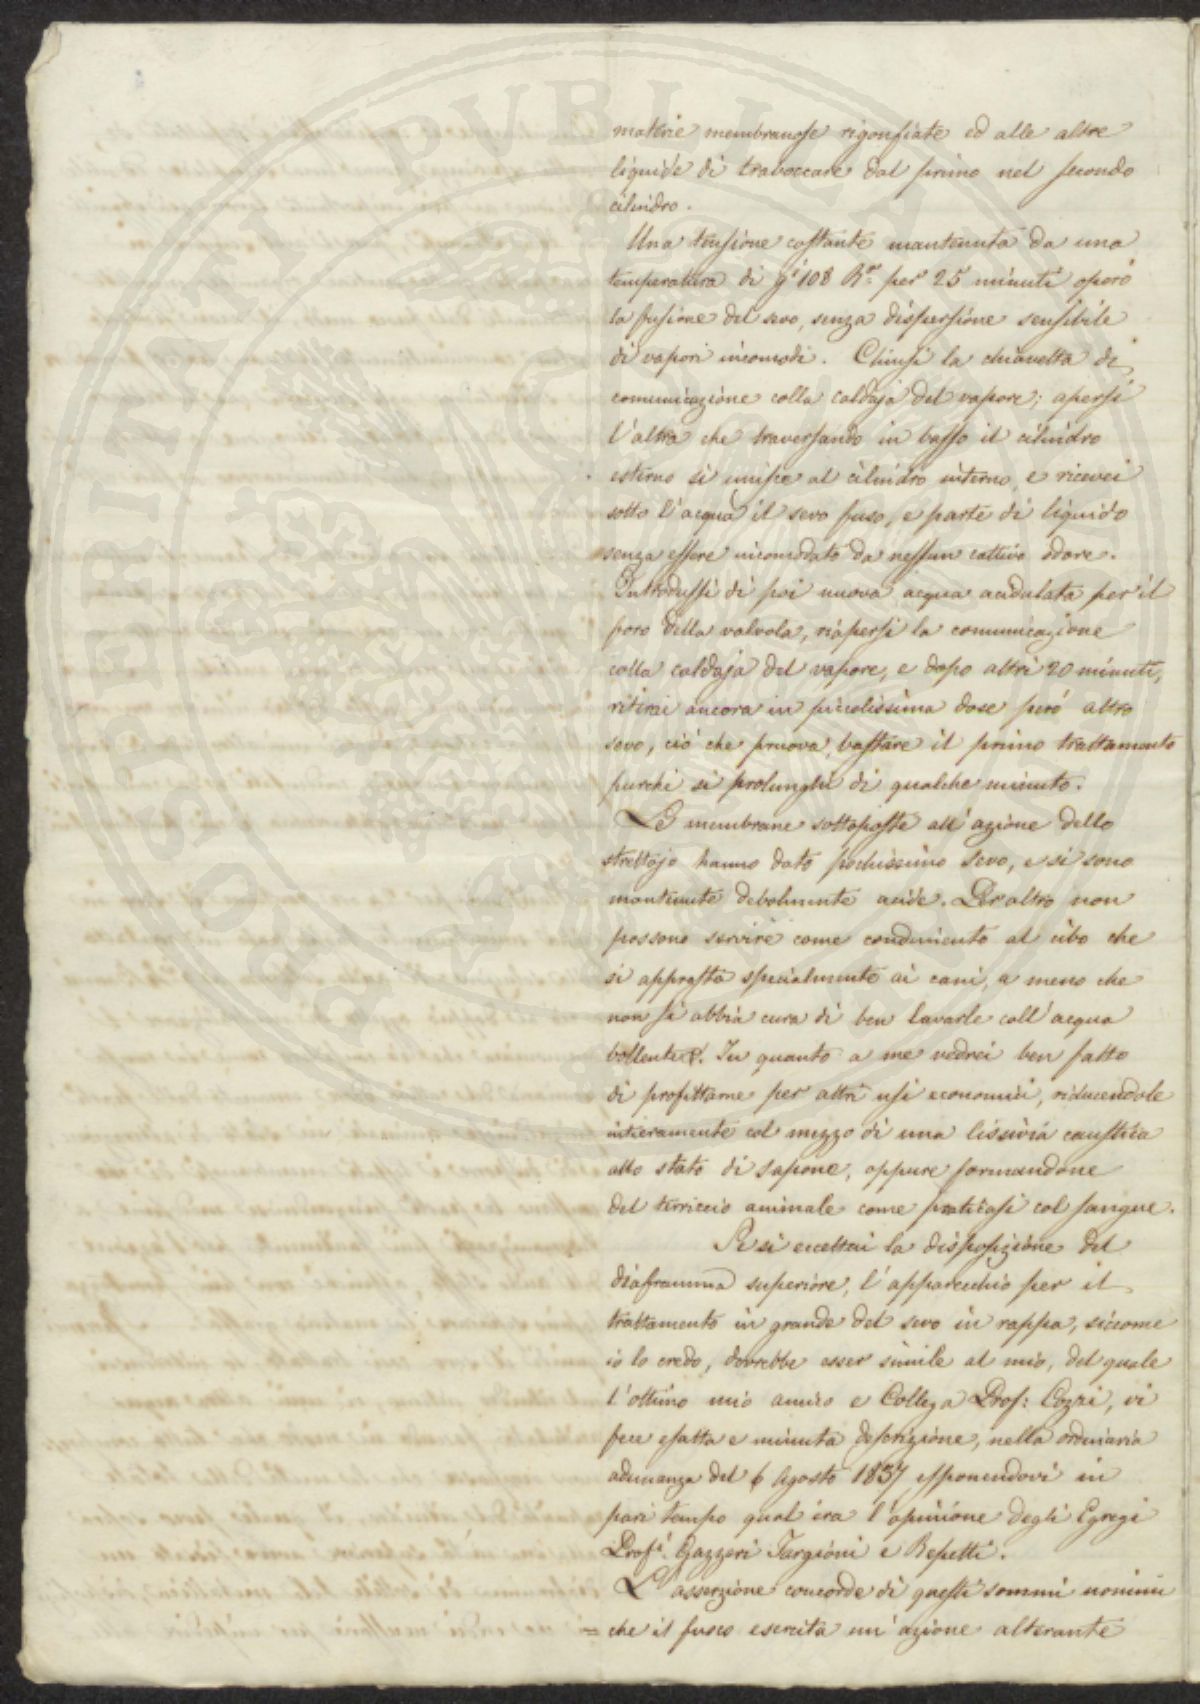 materie membranose rigonfiate ed alle altre
liquide di traboccare dal primo nel secondo
cilindro.
Una tensione costante mantenuta da una
temperatura di gi 108 Rr per 25 minuti operò
la fusione del sevo, senza dispersione sensibile
di vapori incomodi. Chiusi la chiavetta di
comunicazione colla caldaja del vapore; apersi
l'altra che traversando in basso il cilindro
esterno si unisce al cilindro interno, e ricevei
sotto l'acqua il sevo fuso, e parte di liquido
senza essere incomodato da nessun cattivo odore.
Introdussi di poi nuova acqua acidulata per il
foro della valvola, riapersi la comunicazione
colla caldaja del vapore, e dopo altri 20 minuti,
ritirai ancora in piccolissima dose però altro
sevo, ciò che pruova, bastare il primo trattamento
purchè si prolunghi di qualche minuto.
Le membrane sottoposte all'azione dello
strettojo hanno dato pochissimo sevo, e si sono
mantenute debolmente acide. Per altro non
possono servire come condimento al cibo che
si appresta specialmente ai cani, a meno che
non si abbia cura di ben lavarle coll'acqua
bollente. In quanto a me vedrei ben fatto
di profittarne per altri usi economici, riducendole
intieramente col mezzo di una lissivia caustica
allo stato di sapone, oppure formandone
del terriccio animale come praticasi col sangue.
Se si eccettui la disposizione del
diaframma superiore, l'apparecchio per il
trattamento in grande del sevo in rappa, siccome
io lo credo, dovrebbe esser simile al mio, del quale
l'ottimo mio amico e Collega Prof: Cozzi, vi
fece esatta e minuta descrizione, nella ordinaria
adunanza del 6 Agosto 1837, esponendovi in
pari tempo qual era l'opinione degli Egregi
Profi. Gazzeri Targioni e Repetti.
L'asserzione concorde di questi sommi uomini
= che il fuoco esercita un'azione alterante
POSSUERITATI PUBLICAE